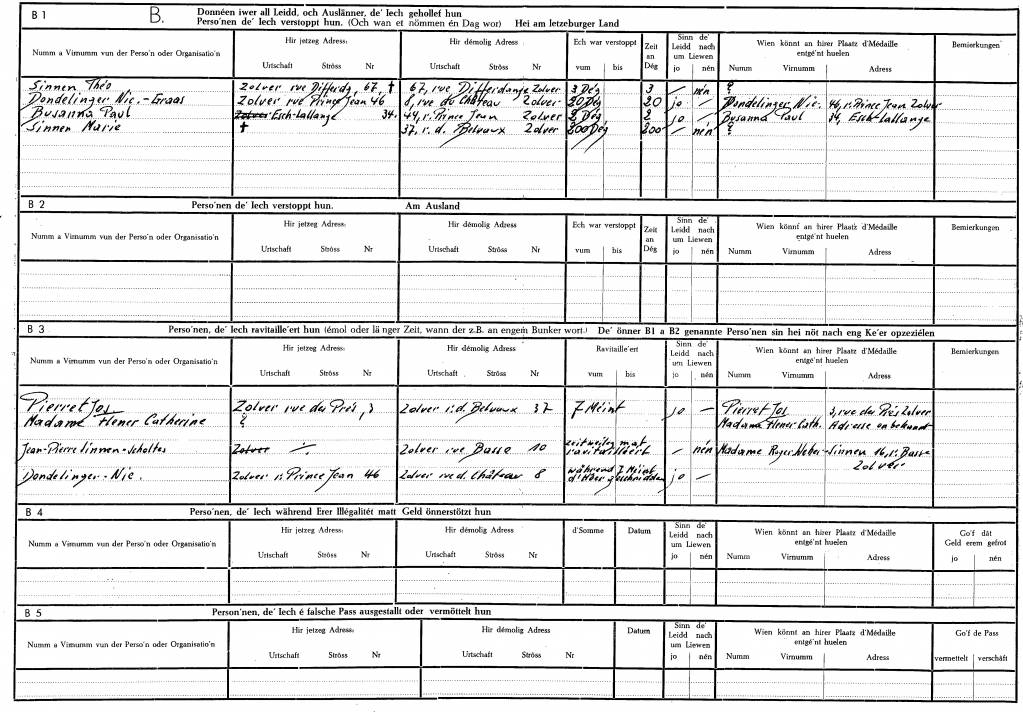 B 1 B. Donnéen iwer all Leidd, och Auslänner, de' Iech gehollef hun
Perso'nen de' Iech verstoppt hun. (Och wan et nömmen én Dag wor) Hei am letzeburger Land
Numm a Virnumm vun der Perso'n oder Organisatio'n Hir jetzeg Adress: Urtschaft Ströss Nr Hir démolig Adress Urtschaft Ströss Nr Ech war verstoppt vum bis Zeit an Dég Sinn de' Leidd nach um Liewen jo nén Wien könnt an hirer Plaatz d'Médaille entgé'nt huelen Numm Virnumm Adress Bemierkungen
Sinnen Théo Zolver rue Differdg, 67, † 67, rue Differdange Zolver 3 Dég 3 — nén ?
Dondelinger Nic. - Graas Zolver rue Prince Jean 46 8, rue du Château Zolver 20 Dég 20 jo — Dondelinger Nic. 46, r. Prince Jean Zolver
Busanna Paul Zolver Esch-Lallange 34. 44, r. Prince Jean Zolver 2 Dég 2 jo — Busanna Paul 34, Esch-Lallange
Sinnen Marie † 37, r. d. Belvaux Zolver 200 Dég 200 — nén ?
B 2 Perso'nen de' Iech verstoppt hun. Am Ausland
Numm a Virnumm vun der Perso'n oder Organisatio'n Hir jetzeg Adress: Urtschaft Ströss Nr Hir démolig Adress Urtschaft Ströss Nr Ech war verstoppt vum bis Zeit an Dég Sinn de' Leidd nach um Liewen jo nén Wien könnt an hirer Plaatz d'Médaille entgé'nt huelen Numm Virnumm Adress Bemierkungen
B 3 Perso'nen, de' Iech ravitaille'ert hun (émol oder länger Zeit, wann der z.B. an engem Bunker wort.) De' önner B1 a B2 genannte Perso'nen sin hei nöt nach eng Ke'er opzeziélen
Numm a Virnumm vun der Perso'n oder Organisatio'n Hir jetzeg Adress: Urtschaft Ströss Nr Hir démolig Adress Urtschaft Ströss Nr Ravitaille'ert vum bis Sinn de' Leidd nach um Liewen jo nén Wien könnt an hirer Plaatz d'Médaille entgé'nt huelen Numm Virnumm Adress Bemierkungen
Pierret Jos Zolver rue des Prés, 3 Zolver r. d. Belvaux 37 7 Méint jo — Pierret Jos 3, rue des Prés Zolver
Madame Hener Catherine ? Madame Hener Cath. Adresse onbekannt
Jean-Pierre Sinnen-Scholtes Zolver Zolver rue Basse 10 zeitweileg mat ravitailléert — nén Madame Roger Weber-Sinnen 16, r. Basse Zolver
Dondelinger - Nic. Zolver r. Prince Jean 46 Zolver rue d. Château 8 während 7 Méint d'Hoer geschnidden jo —
B 4 Perso'nen, de' Iech während Erer Illégalitét matt Geld önnerstötzt hun
Numm a Virnumm vun der Perso'n oder Organisatio'n Hir jetzeg Adress: Urtschaft Ströss Nr Hir démolig Adress Urtschaft Ströss Nr d'Somme Datum Sinn de' Leidd nach um Liewen jo nén Wien könnt an hirer Plaatz d'Médaille entgé'nt huelen Numm Virnumm Adress Go'f dât Geld erem gefrot jo nén
B 5 Person'nen, de' Iech é falsche Pass ausgestallt oder vermöttelt hun
Numm a Virnumm vun der Perso'n oder Organisatio'n Hir jetzeg Adress: Urtschaft Ströss Nr Hir démolig Adress Urtschaft Ströss Nr Datum Sinn de' Leidd nach um Liewen jo nén Wien könnt an hirer Plaatz d'Médaille entgé'nt huelen Numm Virnumm Adress Go'f de Pass vermettelt verschâft